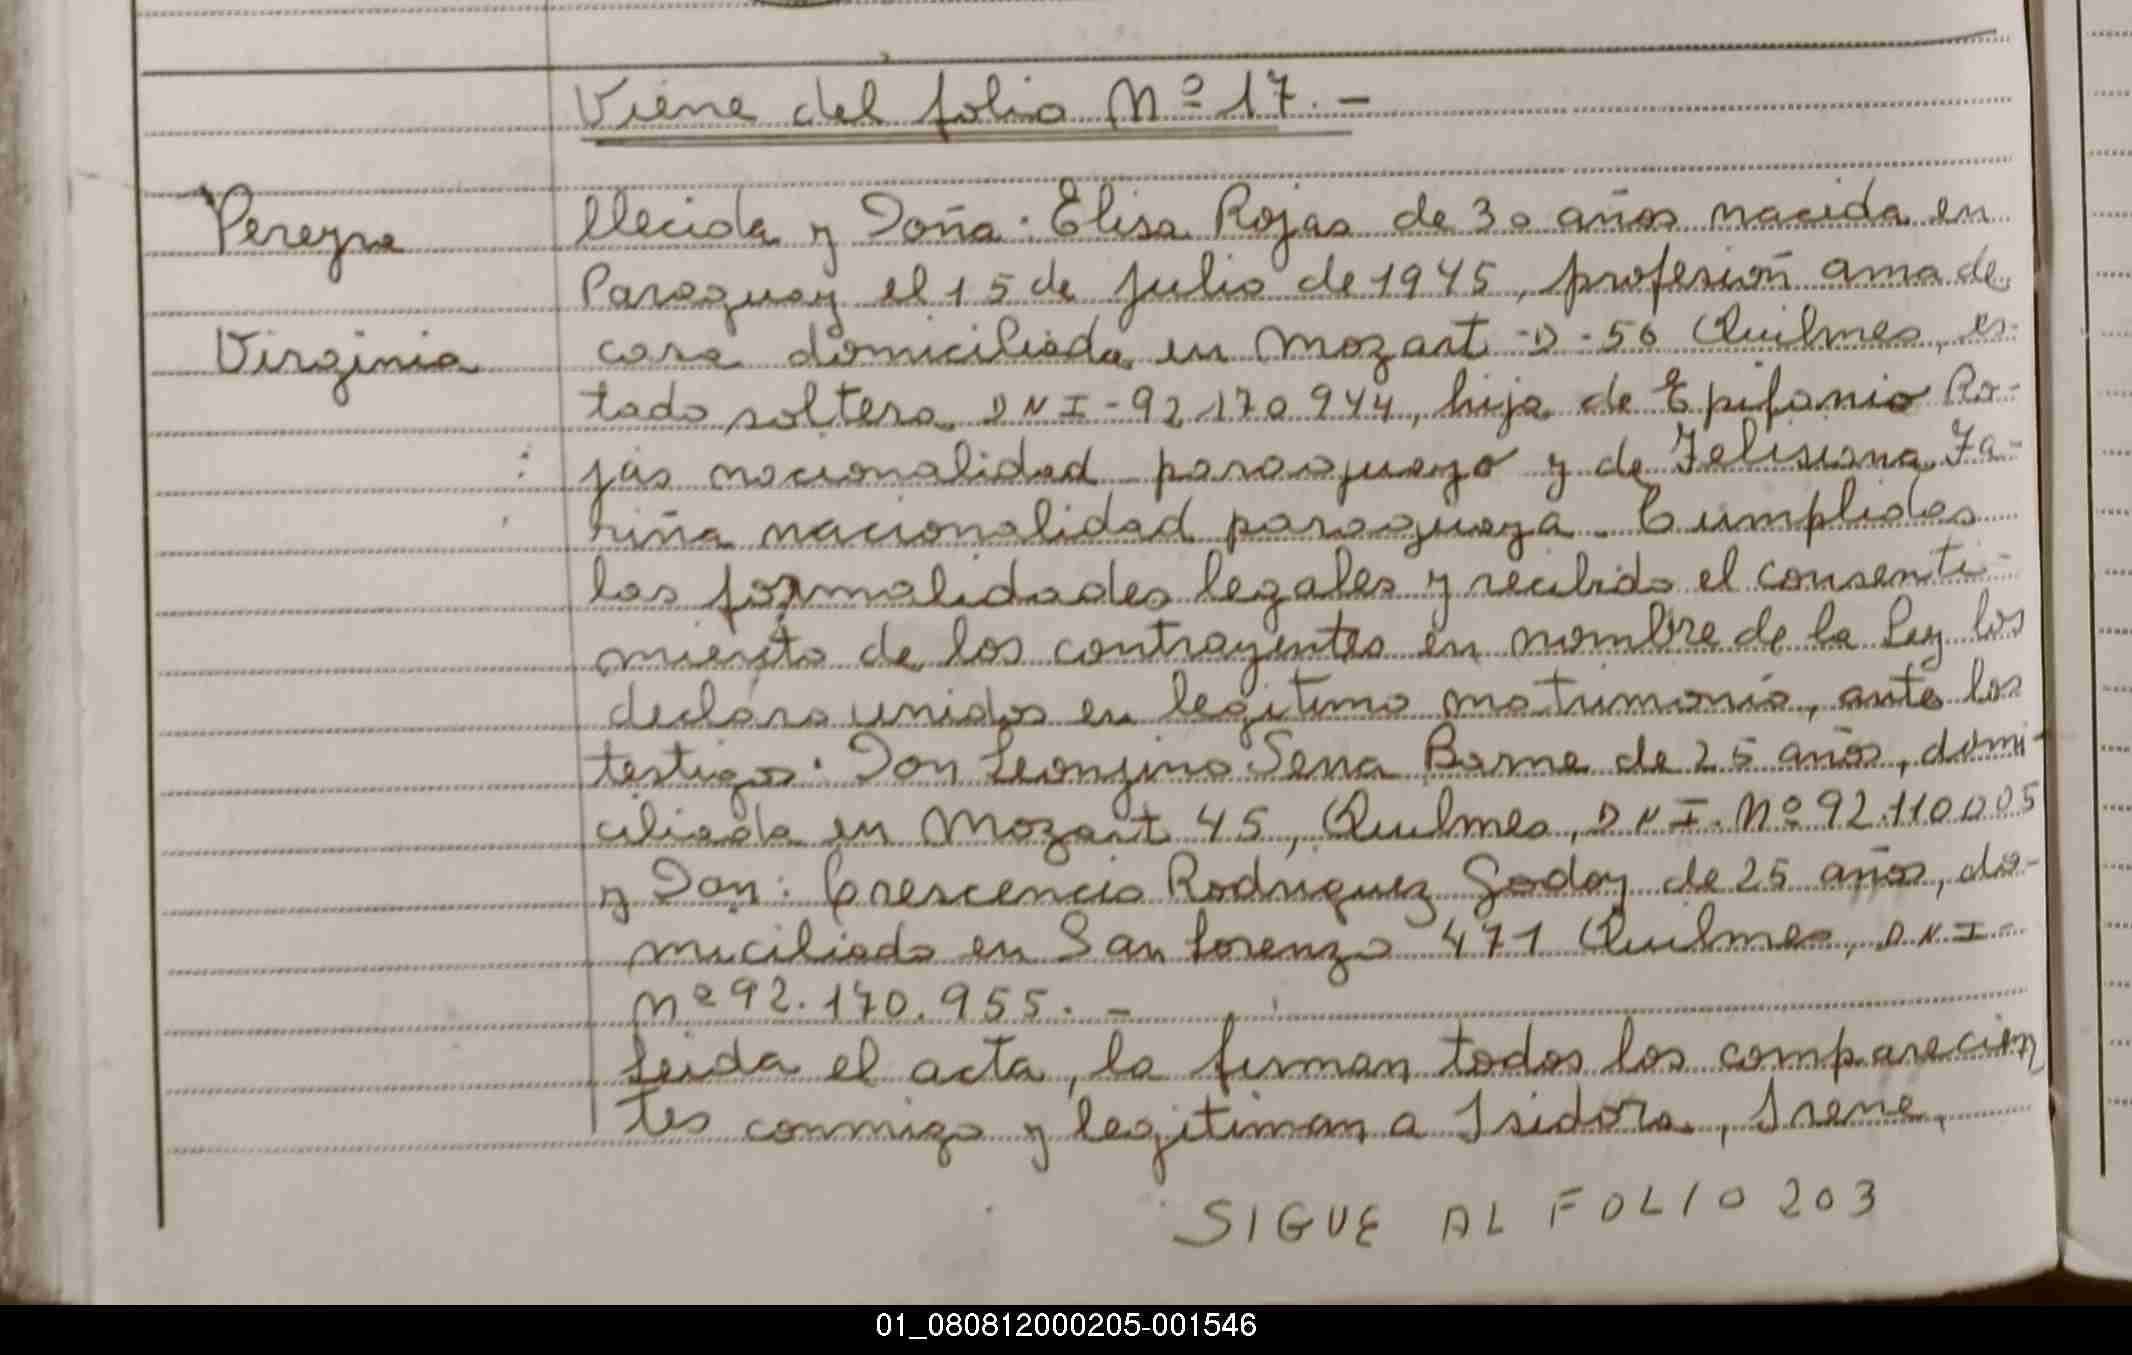 Viene del folio Nº 17. –
Pereyra
llecida y Doña: Elisa Rojas de 30 años nacida en
Paraguay el 15 de Julio de 1945, profesión ama de
Virginia
casa domiciliada en Mozart -D-56 Quilmes, es-
tado soltera DNI-92.170.944, hija de Epifanio Ro-
jas nacionalidad paraguayo y de Felisiana Fa-
riña nacionalidad paraguaya. Cumplidas
las formalidades legales y recibido el consenti-
miento de los contrayentes en nombre de la Ley los
declaro unidos en legítimo matrimonio, ante los
testigos: Don Sena Barne de 25 años, domi-
ciliada en Mozart 45, Quilmes, DNI. Nº 92.110.005
y Don: Crescencio Rodriguez Godoy de 25 años, do-
miciliado en San Lorenzo 471 Quilmes, DNI-
Nº 92.170.955. –
Leida el acta, la firman todos los comparecien
tes conmigo y legitiman a Isidora, Irene,
SIGUE AL FOLIO 203
01_080812000205-001546